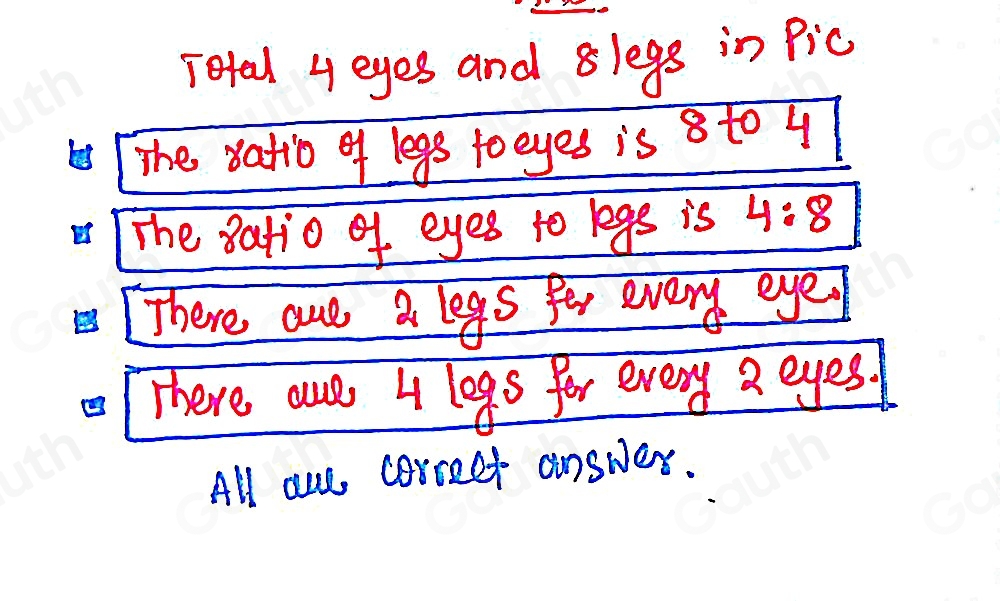 Total 4 eyes and 8 legs in Pic
The ratio of legs to eyes is 8 to 4
The ratio of eyes to legs is 4:8
There are 2 legs for every eye.
There are 4 legs for every 2 eyes.
All are correct answer.
Gauth